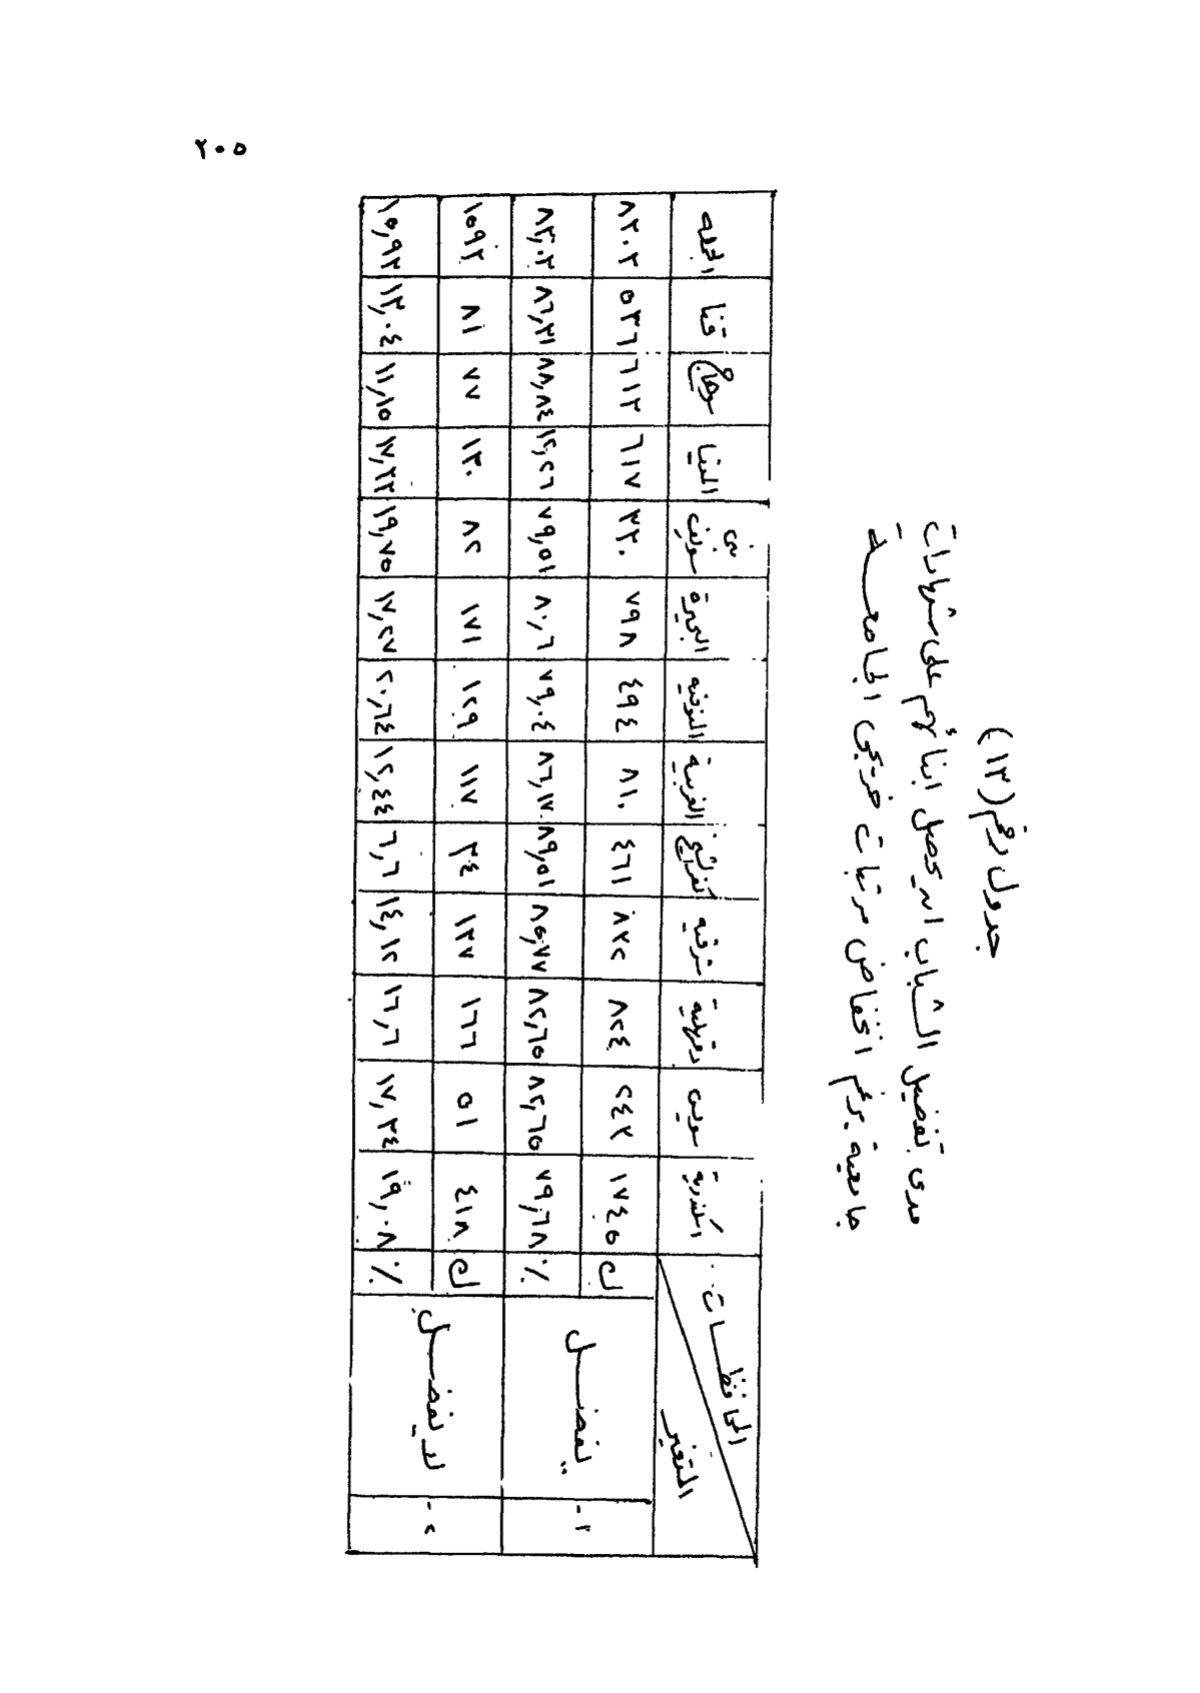 ٢٠٥
جدول رقم (١٣)
مدى تفضيل الشباب ان يحصل ابنائهم على شهادات
جامعية برغم انخفاض مرتبات خريجى الجامعـــة
المحافظات المتغير اسكندرية سويس دقهلية شرقيه كفر الشيخ الغربية المنوفيه البحيرة بنى سويف المنيا سوهاج قنا الجمله
١- يفضل ك ١٧٤٥ ٢٤٣ ٨٢٤ ٨٢٢ ٤٦١ ٨١٠ ٤٩٤ ٧٩٨ ٣٣٠ ٦١٧ ٦١٣ ٥٣٦ ٨٣٠٣
٪ ٧٩,٦٨ ٨٢,٦٥ ٨٢,٦٥ ٨٥,٧٧ ٨٩,٥١ ٨٦,١٧ ٧٩,٠٤ ٨٠,٦ ٧٩,٥١ ٨٨,٨٤ ٨٦,٣١ ٨٣,٠٣
٢- لا يفضل ك ٤١٨ ٥١ ١٦٦ ١٣٧ ٣٤ ١١٧ ١٢٩ ١٧١ ٨٢ ١٣٠ ٧٧ ٨١ ١٥٩٣
٪ ١٩,٠٨ ١٧,٣٤ ١٦,٦ ١٤,١٢ ٦,٦ ١٢,٤٤ ٢٠,٦٤ ١٧,٢٧ ١٩,٧٥ ١٧,٣٣ ١١,١٥ ١٣,٠٤ ١٥,٩٣